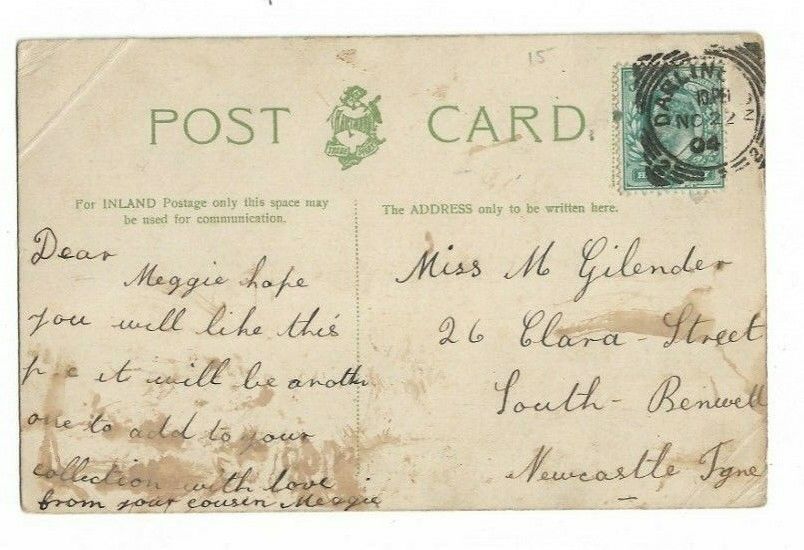 15
POST CARD.
For INLAND Postage only this space may
be used for communication.
The ADDRESS only to be written here.
DARLIN
NO 22
04
Dear
Meggie hope
you will like this
p-c it will be anothr
one to add to your
collection with love
from your cousin Meggie
Miss M Gilender
26 Clara-Street
South-Benwell
Newcastle Tyne